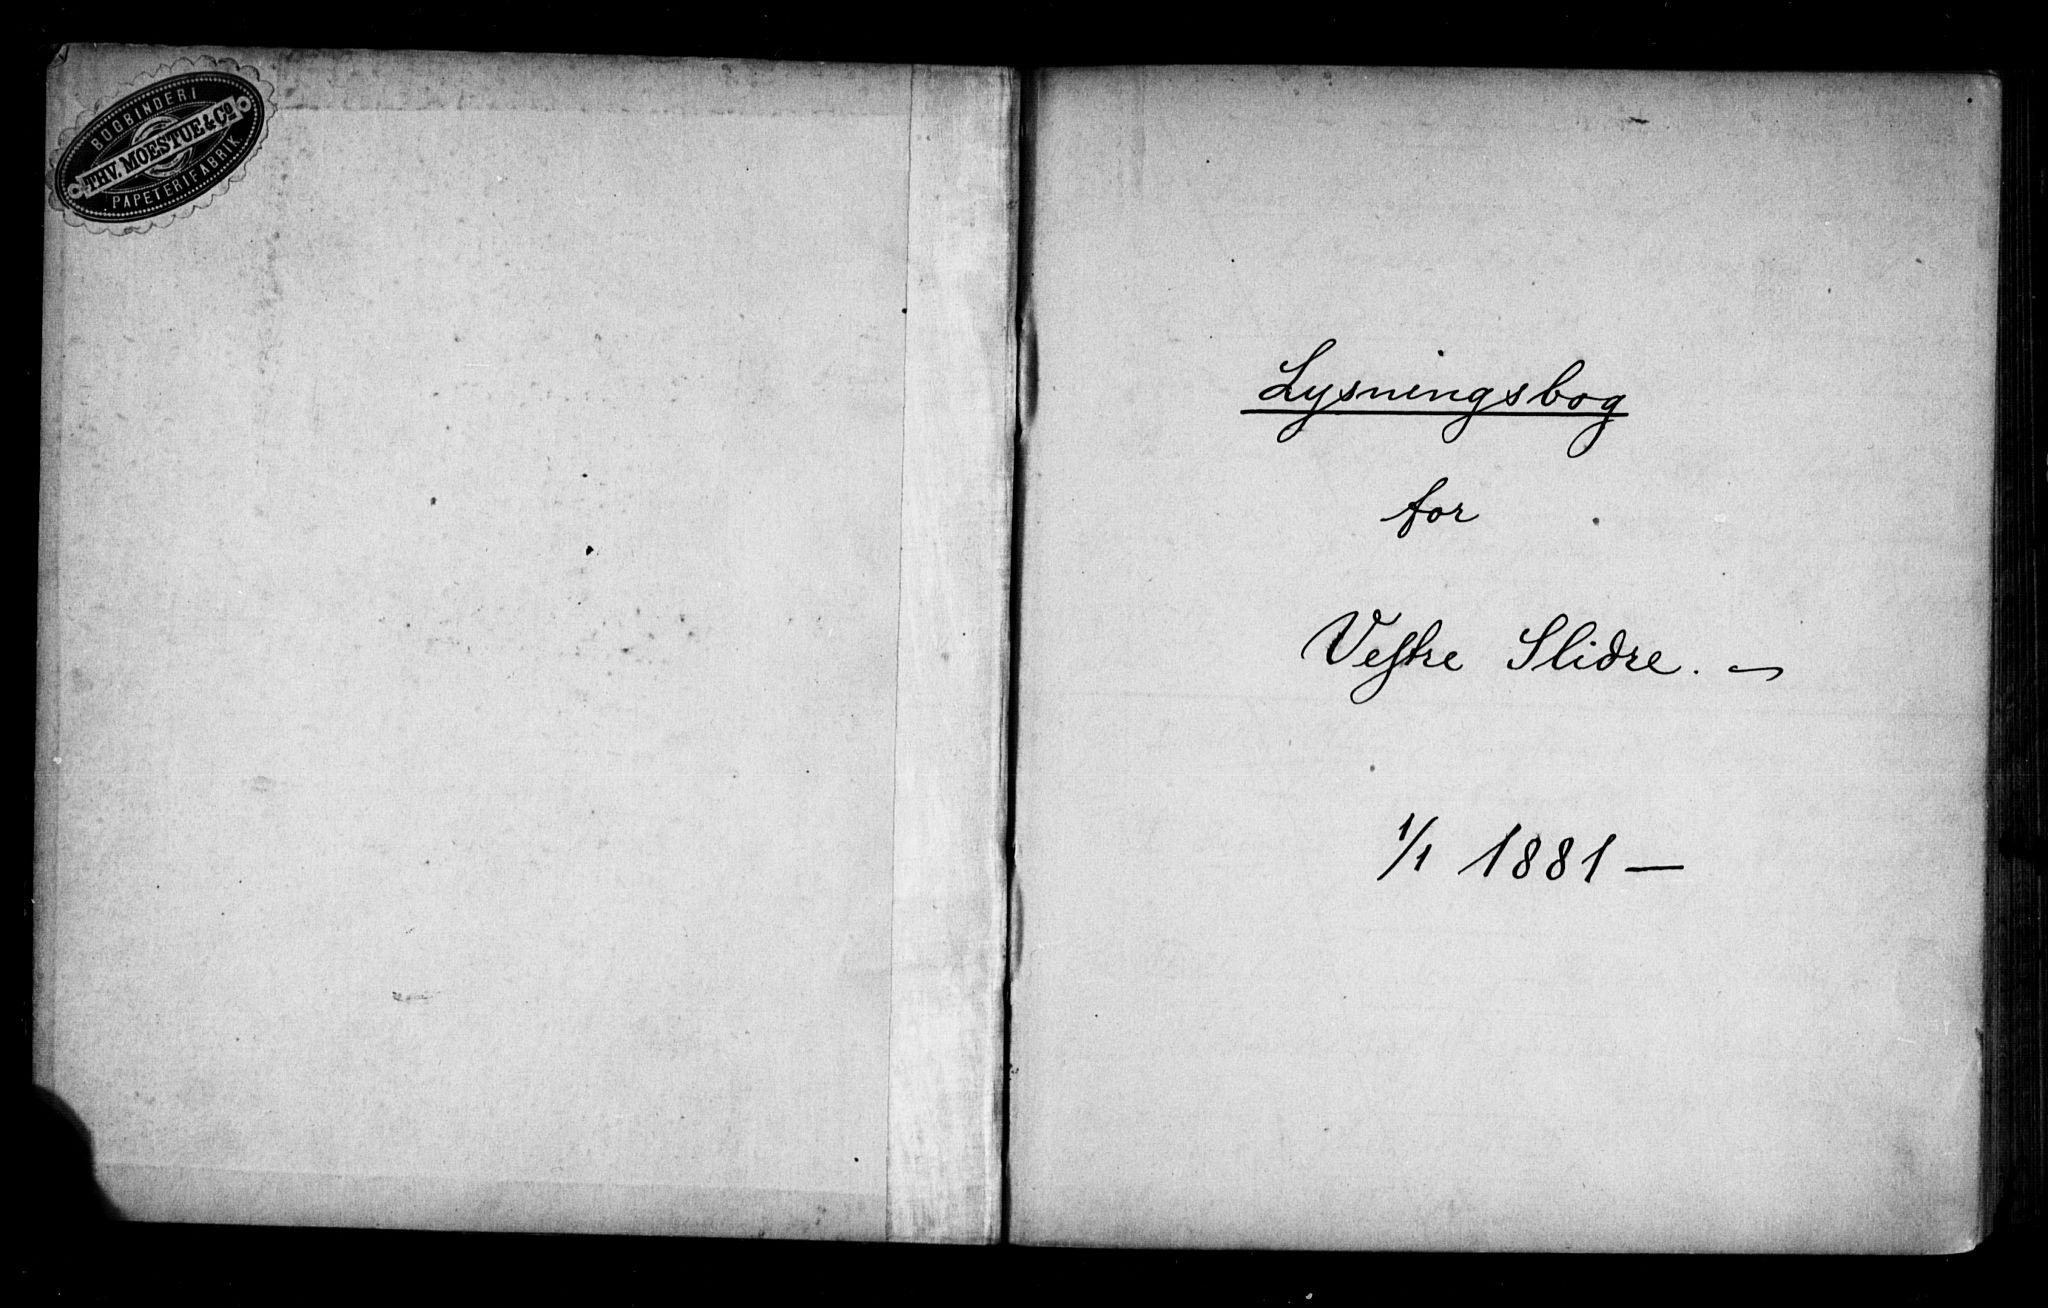 BOGBINDERI
THV. MOESTUE & Co
PAPETERIFABRIK.
Lysningsbog
for
Vestre Slidre. —
1/1 1881 —